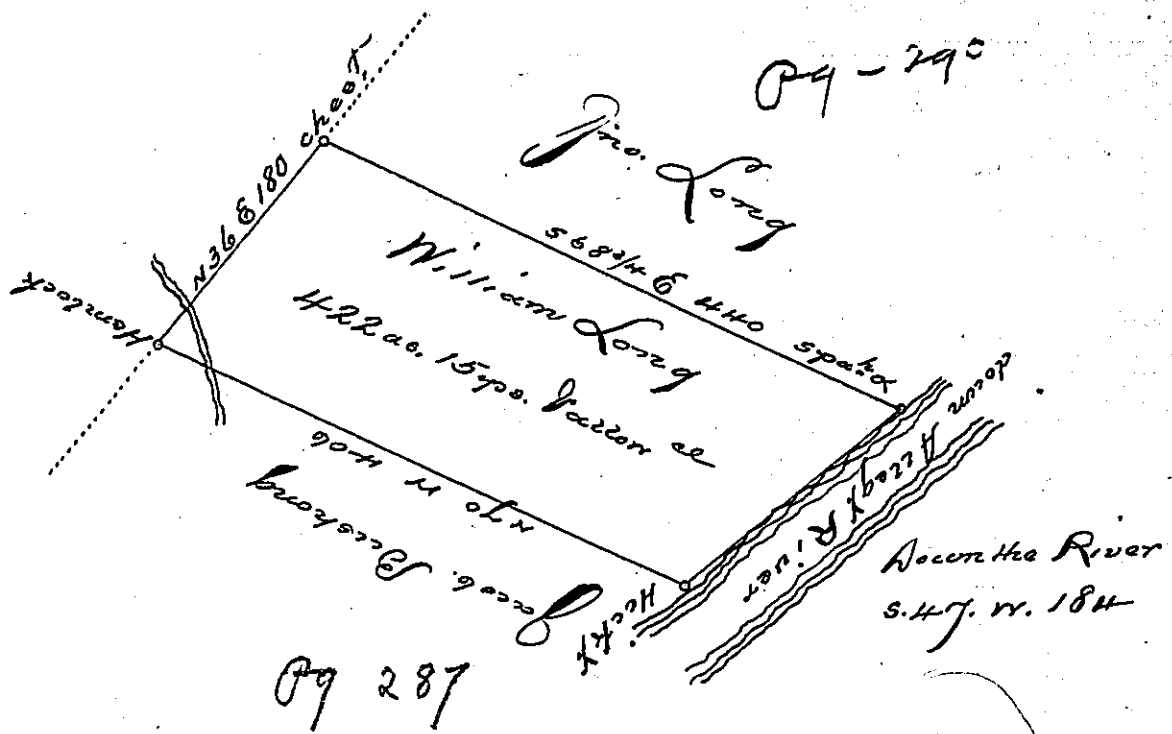 Pg - 290
Jno. Long
Ches.t
N 36 E 180
S 68 3/4 E 440
Spa.h O
William Long
422 ac. 15 ps. & allow ce
Hemlock
N 70 W 406
Jacob Bushong
Hick.y
down
Alleg.y River
Down the River
S. 47. W. 184
Pg 287